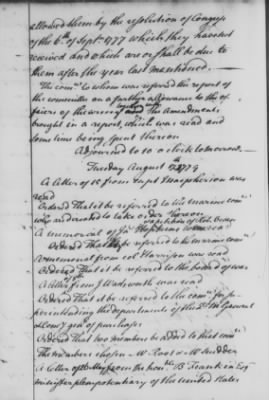 allowed them by the resolution of Congress
of the 6th of Sept. 1777 which they have not
received and which are or shall be due to
them after the year last mentioned.
The comee to whom was referred the report of
the committee on a further allowance to the of
ficers of the army and the Amendments
brought in a report, which was read and
some time being spent thereon
Adjourned to 10 o clock to Morrow.
Tuesday August 1779
A letter of 15 from capt Macpherson was
read
Ordered that it be referred to the marine comee
who are directed to take order thereon
A memorial of Hopkins was read
Ordered that be referred to the marine comee
A memorial from col Harrison was read
Ordered That it be referred to the board of war
A letter from J Wadsworth was read
Ordered That it be referred to the comee for su
perintending the departments of the Qr Mr General
& Comy genl of purchases
Ordered That two members be added to that comee
The members chosen Mr Root & Mr Scudder
A letter of May from the honble B Franklin Esq
minister plenipotentiary of the United States